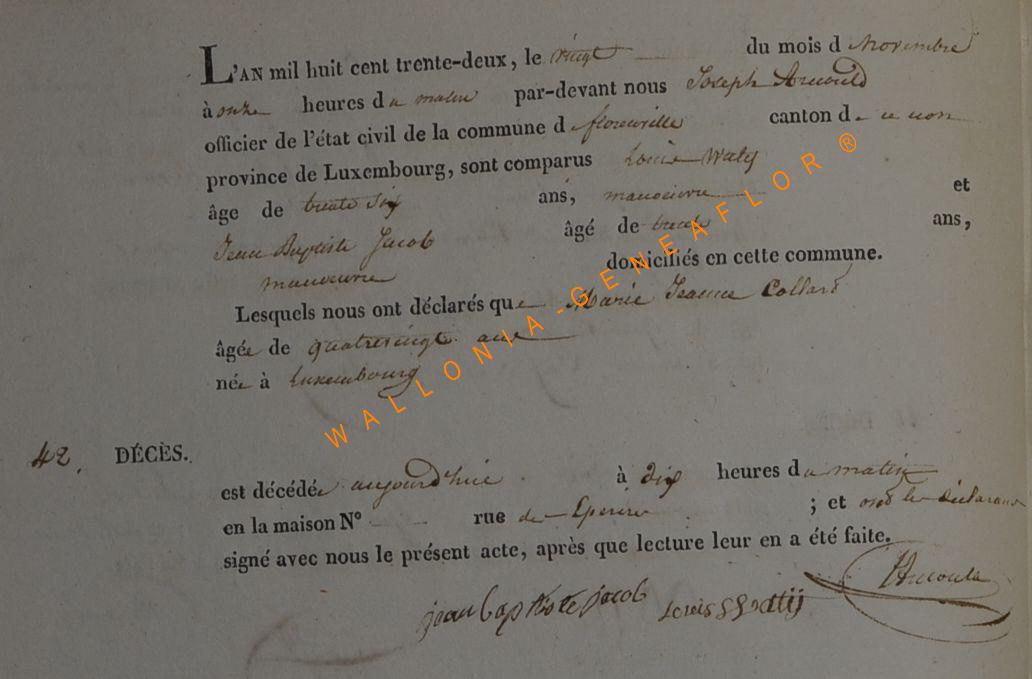 L'AN mil huit cent trente-deux, le vingt du mois d novembre
à onze heures du matin par-devant nous Joseph Arnould
officier de l'état civil de la commune de florenville canton de ce nom
province de Luxembourg, sont comparus Louis Waty
âge de trente six ans, manoeuvre et
Jean Baptiste Jacob âgé de trente ans,
manoeuvre domiciliés en cette commune.
Lesquels nous ont déclarés que Marie Jeanne Collard
âgée de quatrevingt ans
née à Luxembourg
42. DÉCÈS.
est décédée aujourd'huie à dix heures du matin
en la maison N° rue de ; et ont les déclarans
signé avec nous le présent acte, après que lecture leur en a été faite.
jean baptiste jacob Louis Watij Arnould
WALLONIA-GENEAFLOR®